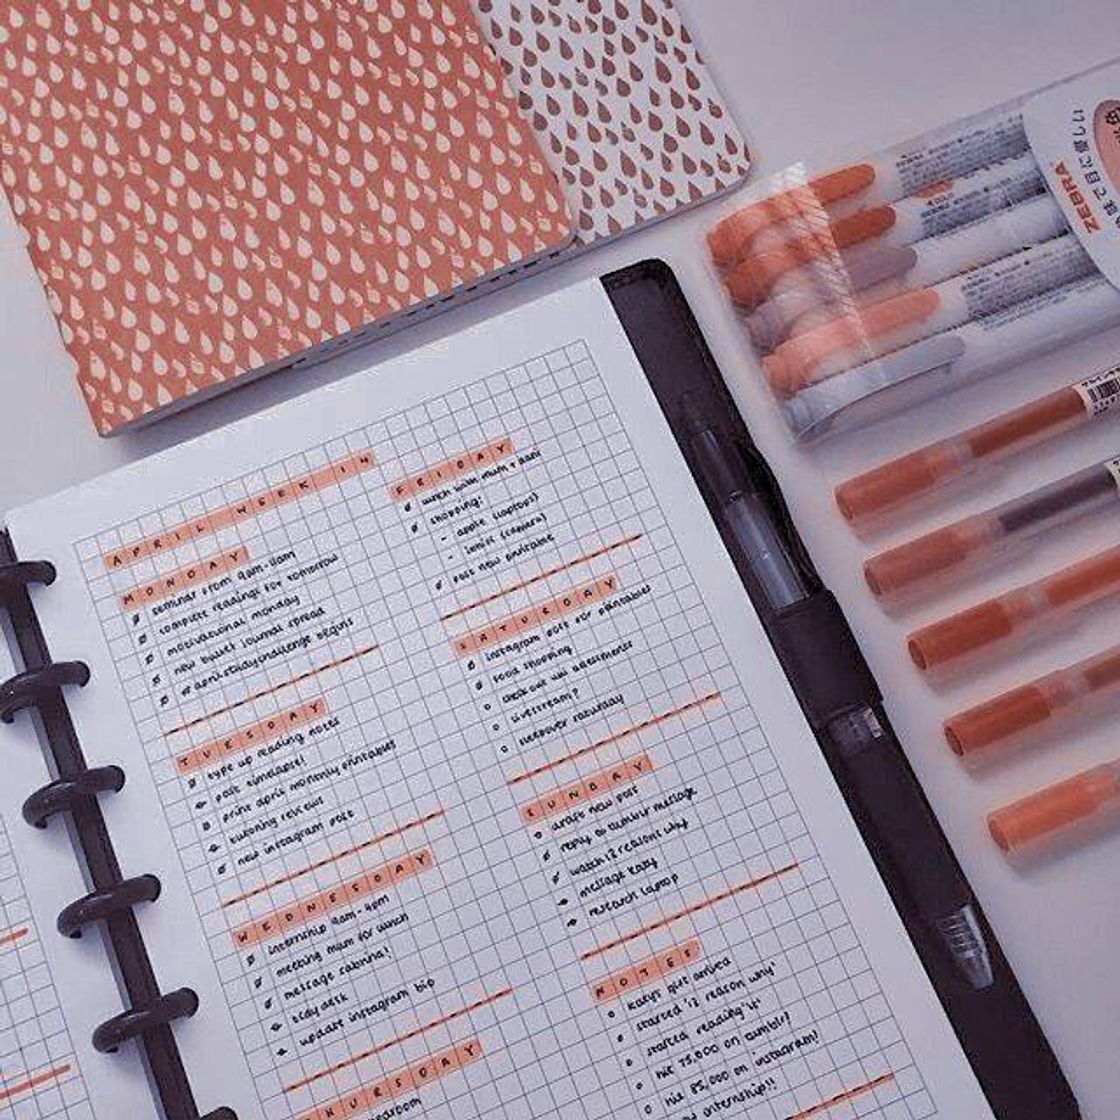 APRIL WEEK 14
MONDAY
seminar from 9am-11am
complete readings for tomorrow
motivational monday
new bullet journal spread
#aprilstudychallenge begins
TUESDAY
type up reading notes
post timelapse!
print april monthly printables
tutoring reviews
new instagram post
WEDNESDAY
internship 9am-4pm
meeting mum for lunch
message sabrina!
tidy desk
update instagram bio
THURSDAY
FRIDAY
lunch with mum +
shopping:
- apple (laptops)
- (camera)
post new printable
SATURDAY
instagram post for printables
food shopping
check out uni assessments
livestream?
sleepover saturday
SUNDAY
draft new post
reply to tumblr message
watch 13 reasons why
message katy
research laptop
NOTES
katy's gift arrived
started '13 reason why'
started reading 'it'
hit 75,000 on tumblr!
hit 85,000 on instagram!
internship!!
ZEBRA